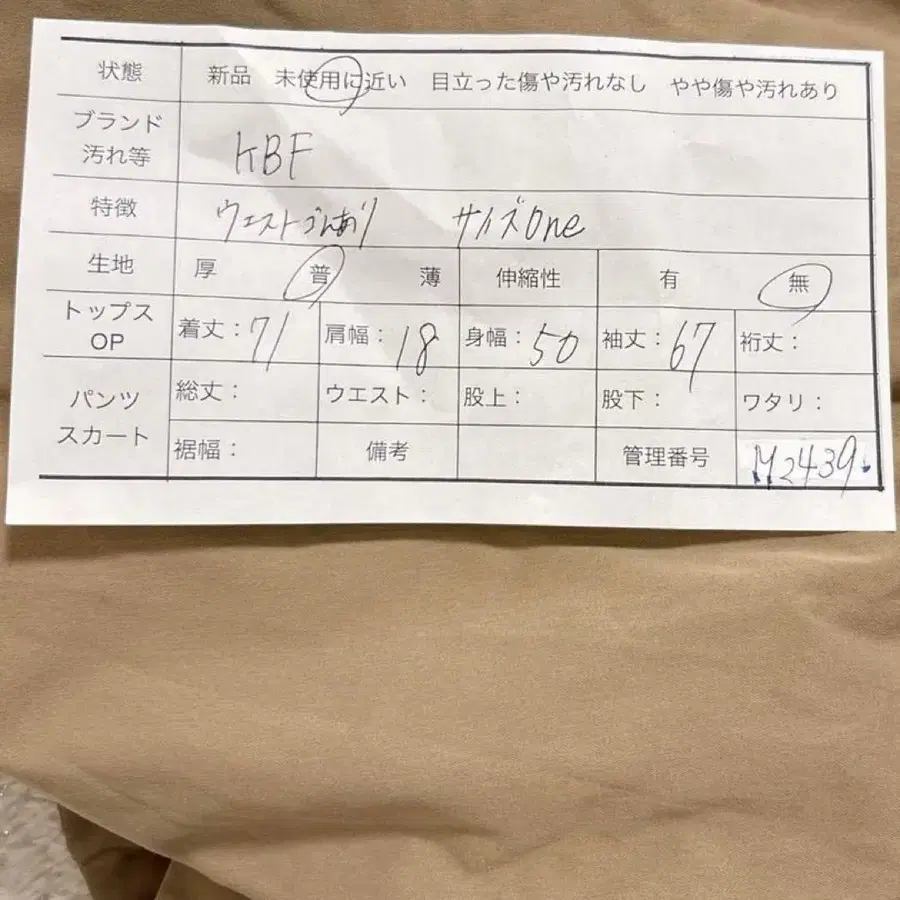 状態 新品 未使用に近い 目立った傷や汚れなし やや傷や汚れあり
ブランド
汚れ等 KBF
特徴 ウエストゴムあり サイズone
生地 厚 普 薄 伸縮性 有 無
トップス
OP 着丈：71 肩幅：18 身幅：50 袖丈：67 裄丈：
パンツ
スカート 総丈： ウエスト： 股上： 股下： ワタリ：
裾幅： 備考 管理番号 M2439